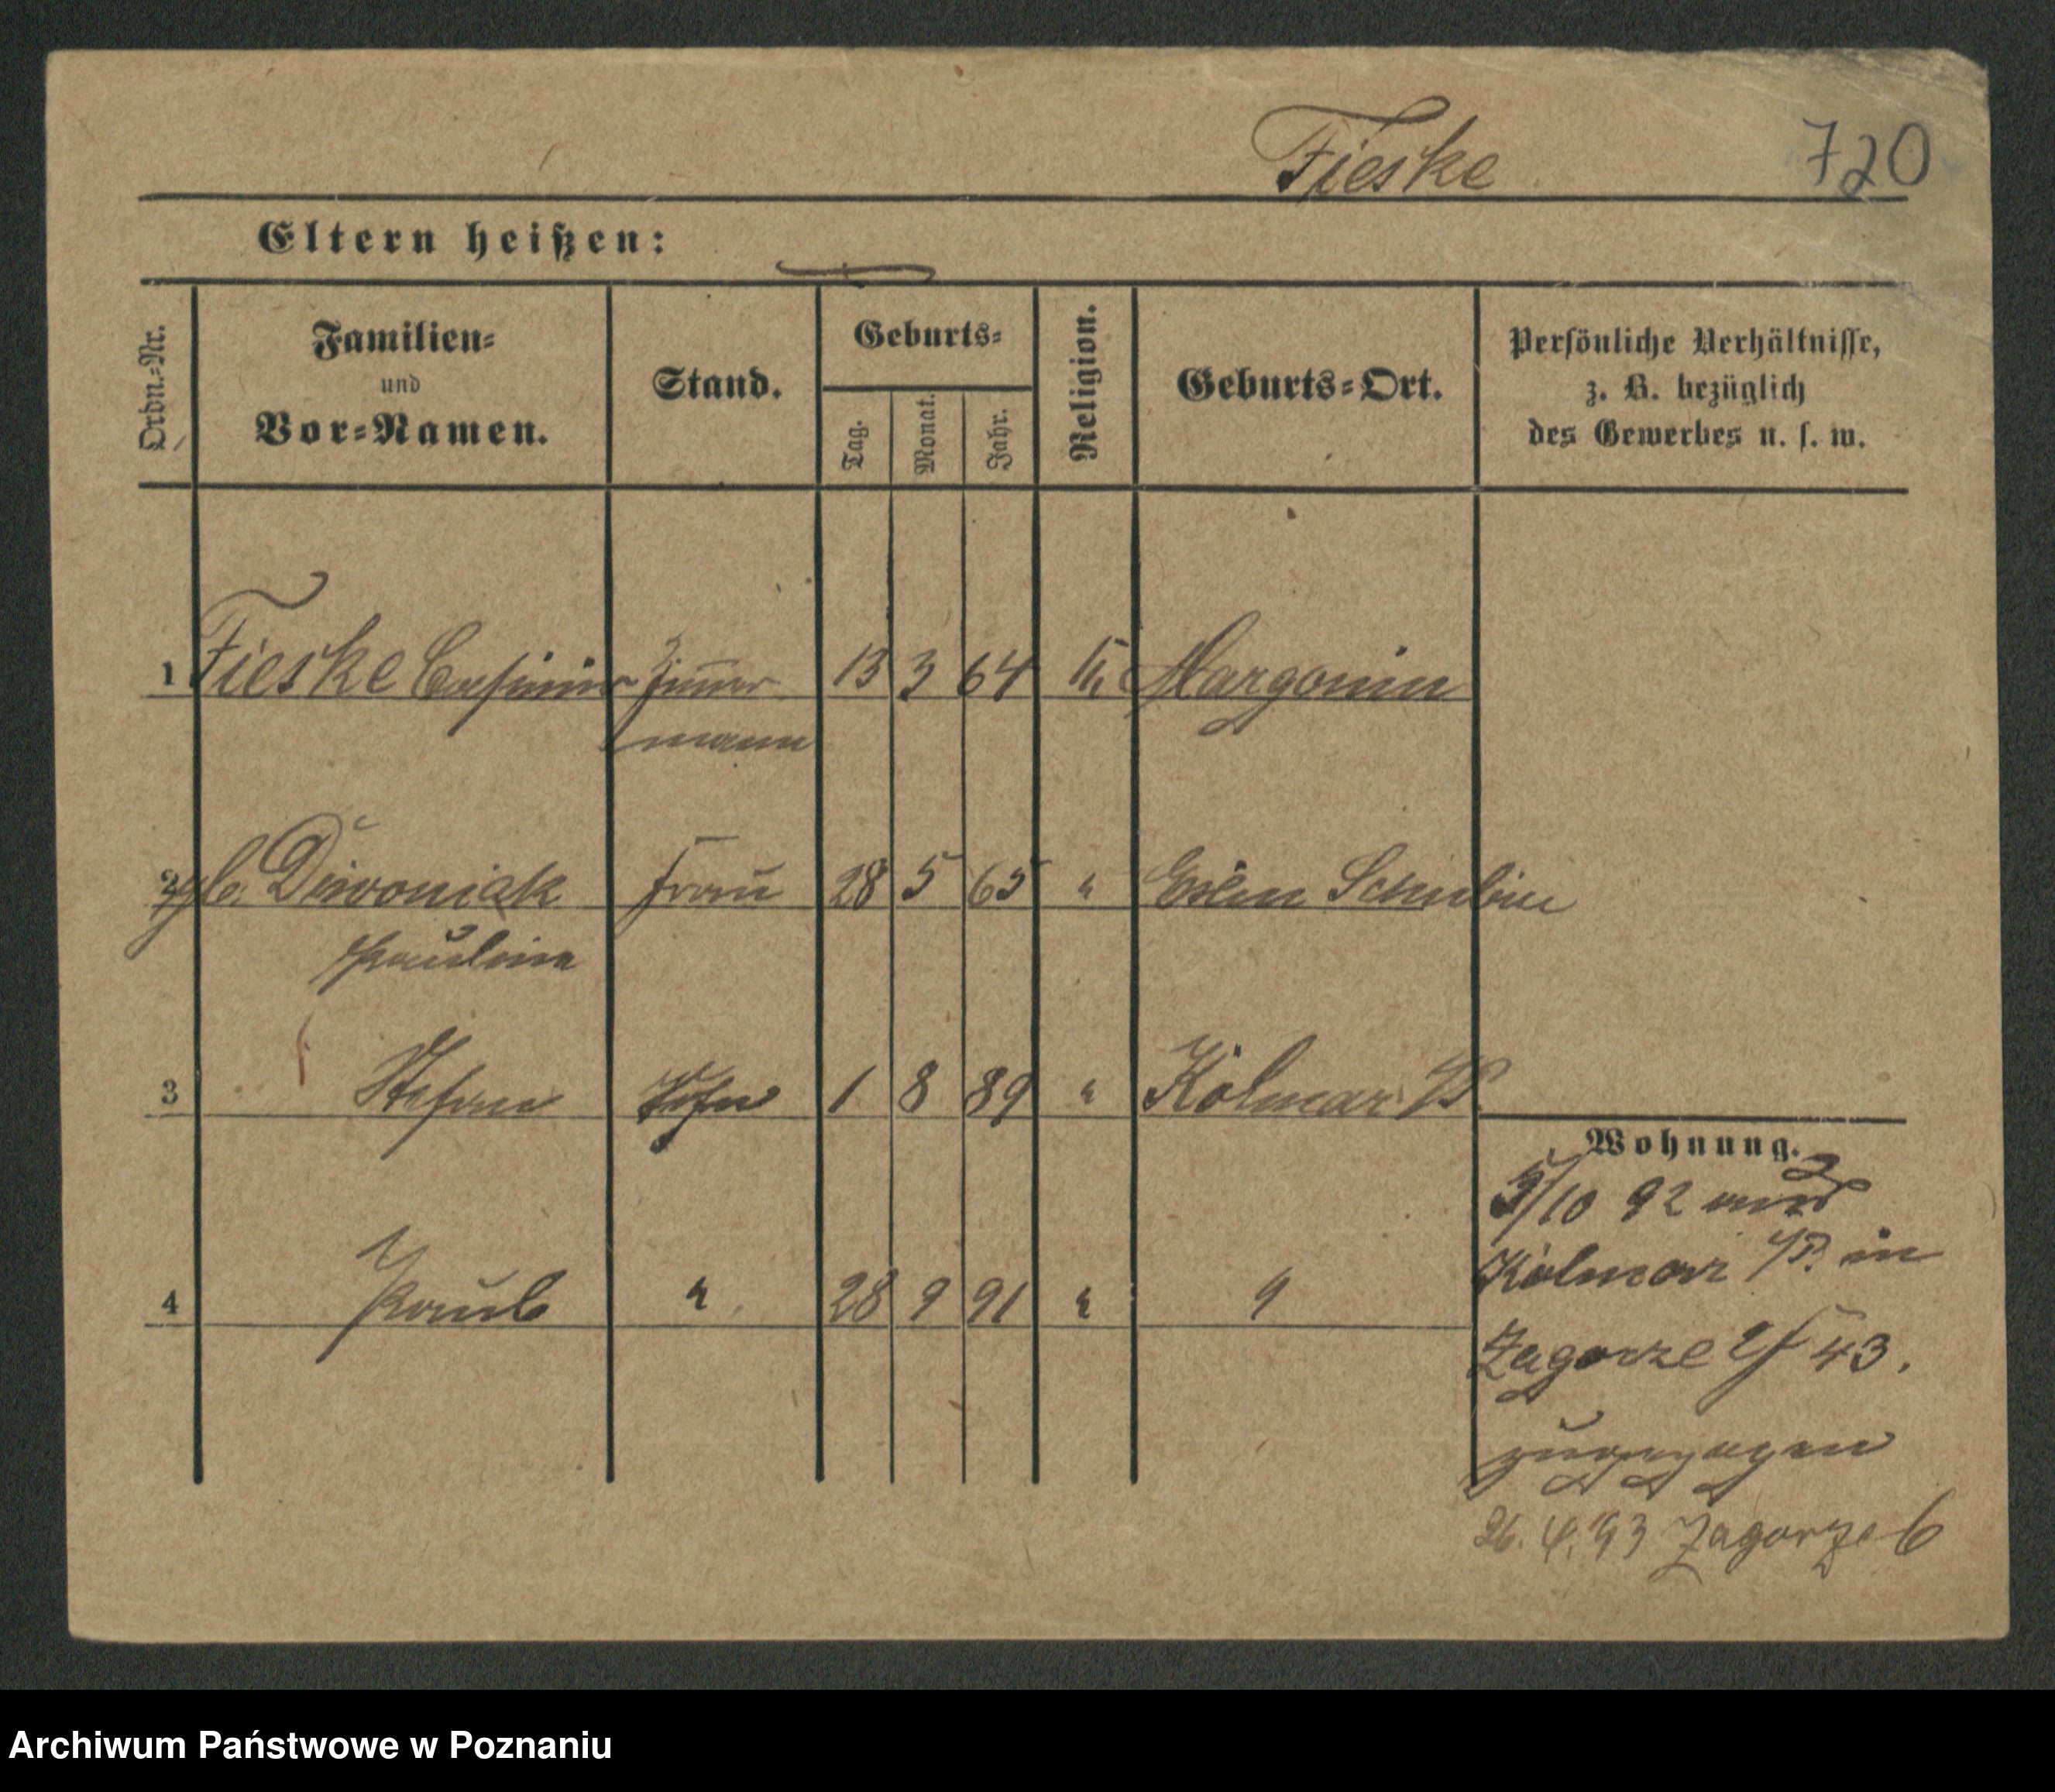 Fieske 720
Eltern heißen:
Ordn.-Nr.
Familien-
und
Vor-Namen.
Stand.
Geburts-
Tag.
Monat.
Jahr.
Religion.
Geburts-Ort.
Persönliche Verhältnisse,
z. B. bezüglich
des Gewerbes u. s. w.
1 Fieske Casimir Zimer 13 3 64 Margonin
mann
2 gb. Diwoniak Frau 28 5 65 " Exin Schubin
Paulina
3 Stefan Sohn 1 8 89 " Kolmar P
4 Paul " 28 9 91 " "
Wohnung.
3/10 92 aus
Kolmar P. in
Zagorze 43.
zugezogen
26. 4. 93 Zagorze 6
Archiwum Państwowe w Poznaniu